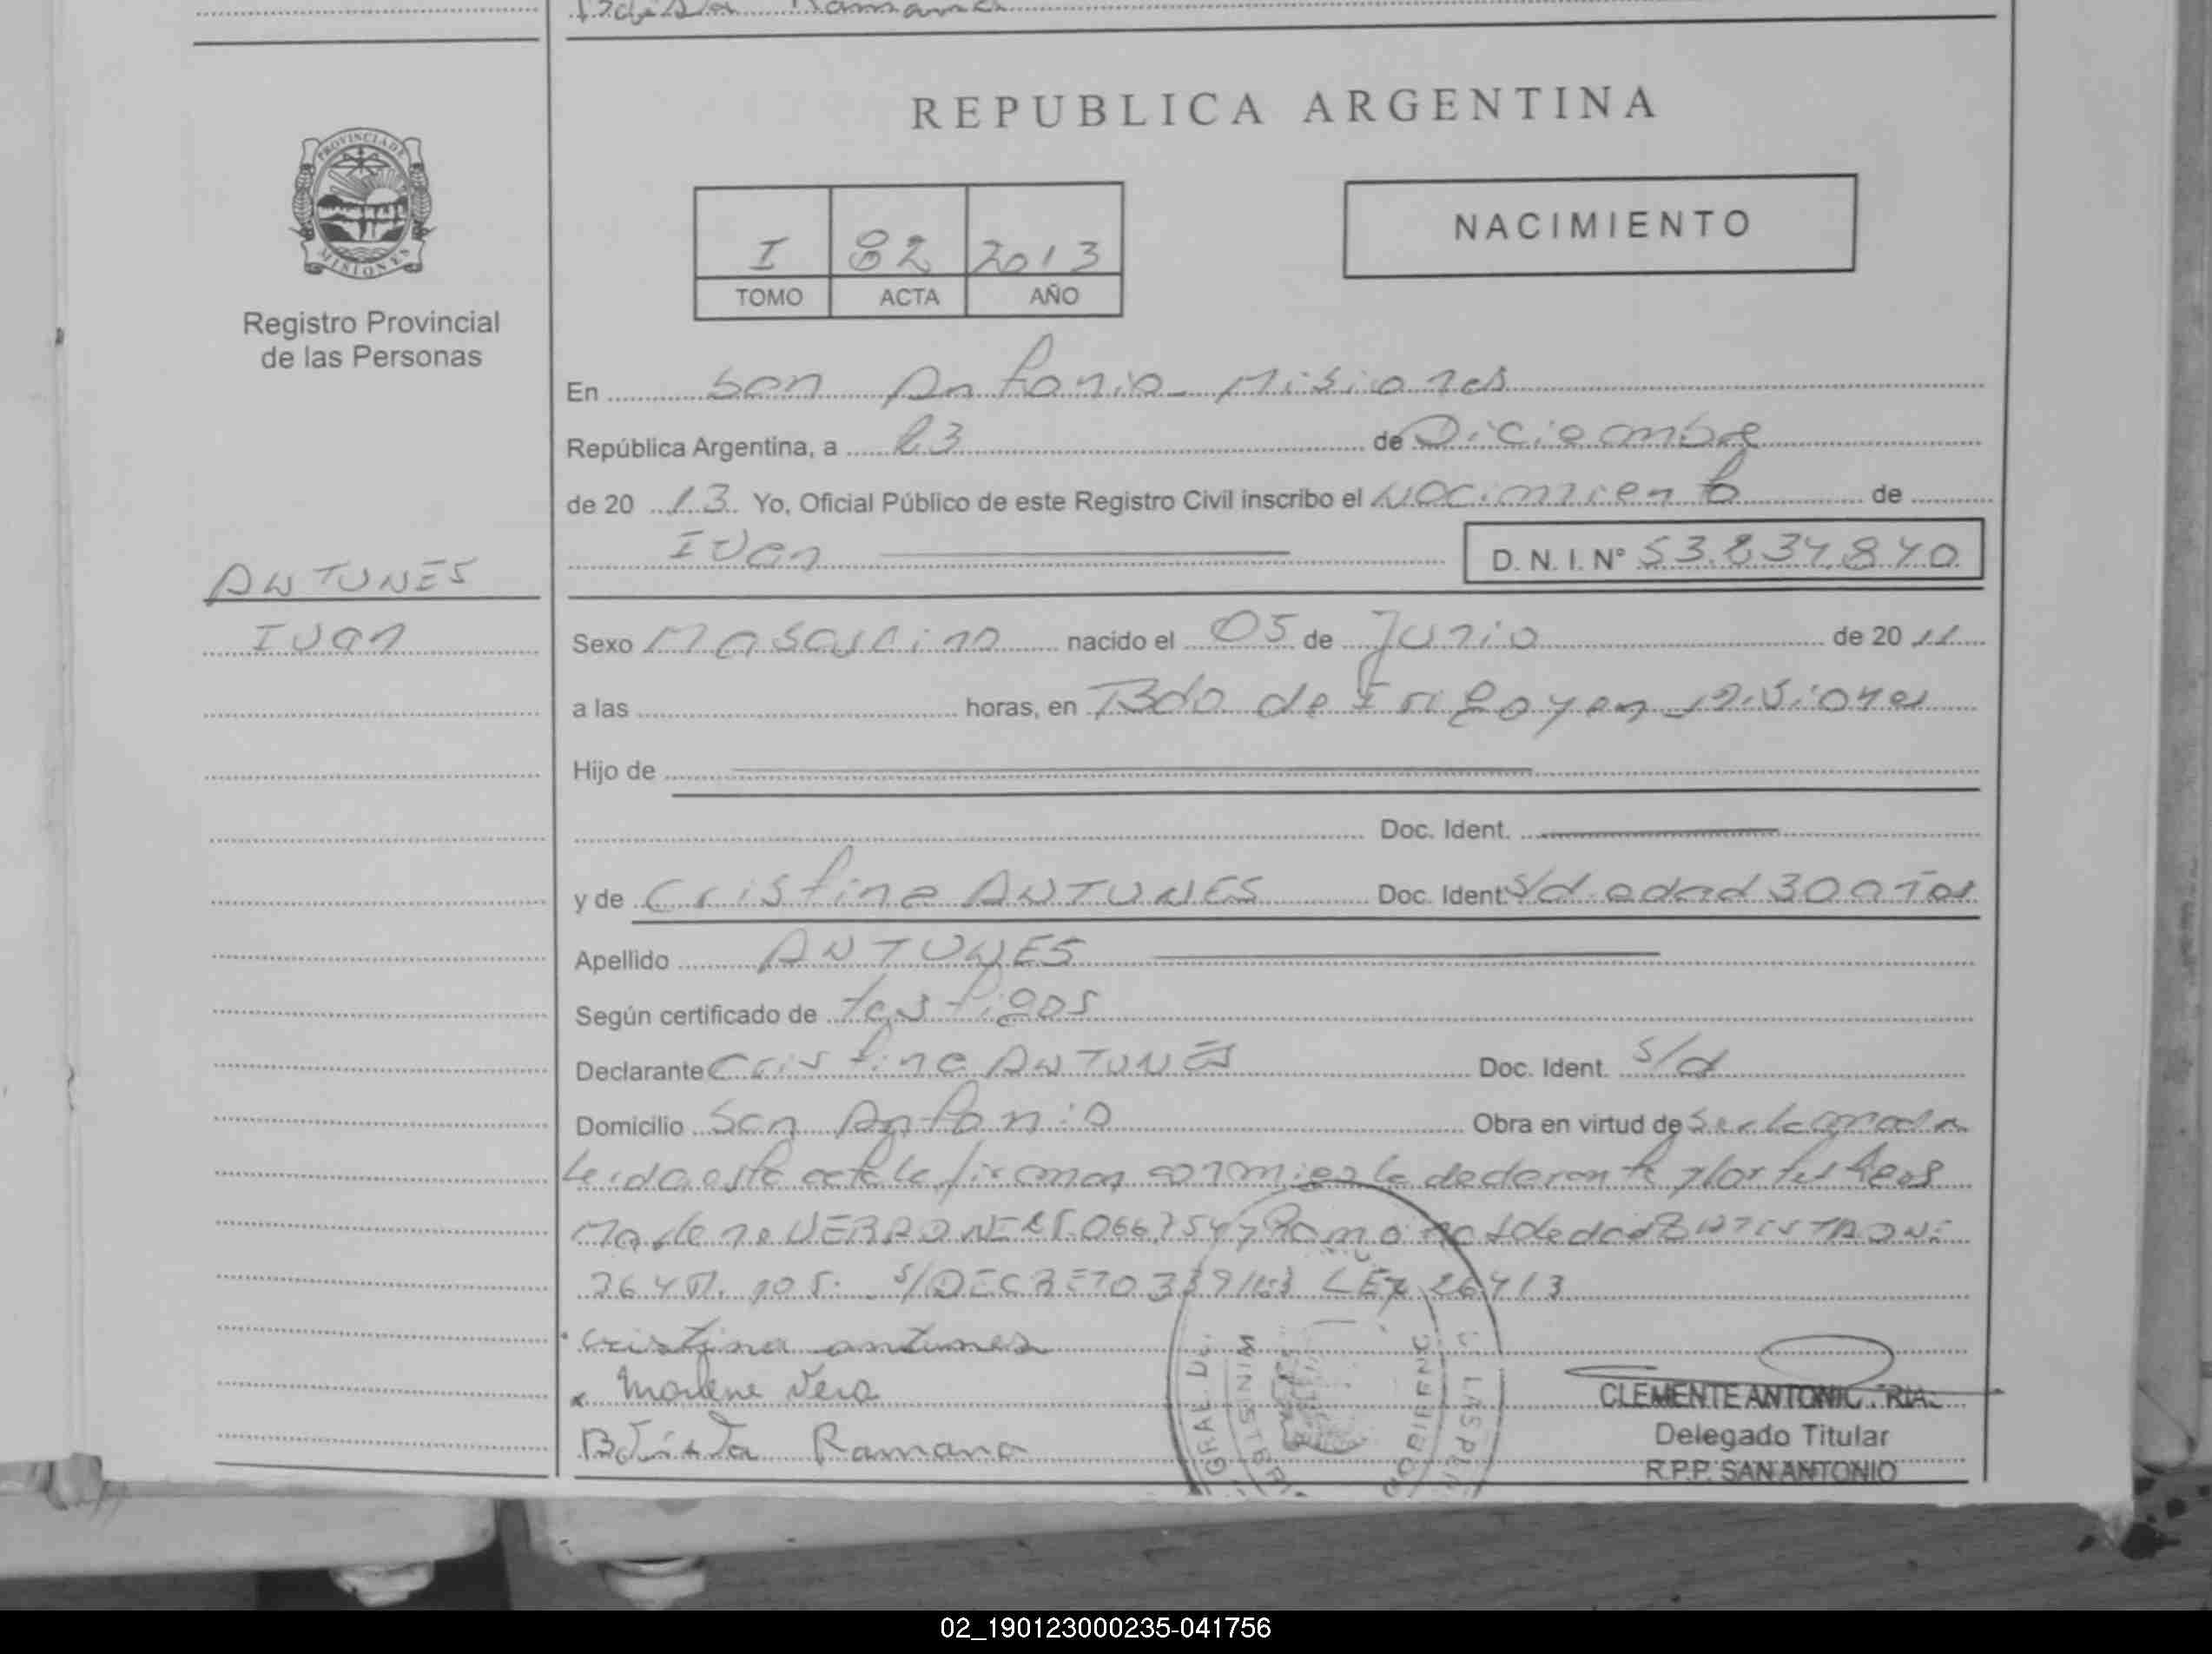 Ramana
REPUBLICA ARGENTINA
PROVINCIA DE MISIONES
NACIMIENTO
I 82 2013
TOMO ACTA AÑO
Registro Provincial
de las Personas
En San Antonio - Misiones
República Argentina, a 23 de Diciembre
de 20 13 Yo, Oficial Público de este Registro Civil inscribo el Nacimiento de
Ivan D. N. I. Nº 53.834.840
ANTUNES
Ivan
Sexo Masculino nacido el 05 de Junio de 20 11
a las horas, en Bdo de Irigoyen - Misiones
Hijo de
Doc. Ident.
y de Cristina ANTUNES Doc. Ident. s/d edad 30 años
Apellido ANTUNES
Según certificado de testigos
Declarante Cristina ANTUNES Doc. Ident. s/d
Domicilio San Antonio Obra en virtud de
Leida esta acta la firman conmigo la declarante y los testigos
VERA DNI y Ramona Soledad BATISTA DNI
s/DECRETO 339/13 LEY 26413
cristina antunes
x Marlene Vera
Batista Ramana
CLEMENTE ANTONIO
Delegado Titular
R.P.P. SAN ANTONIO
02_190123000235-041756